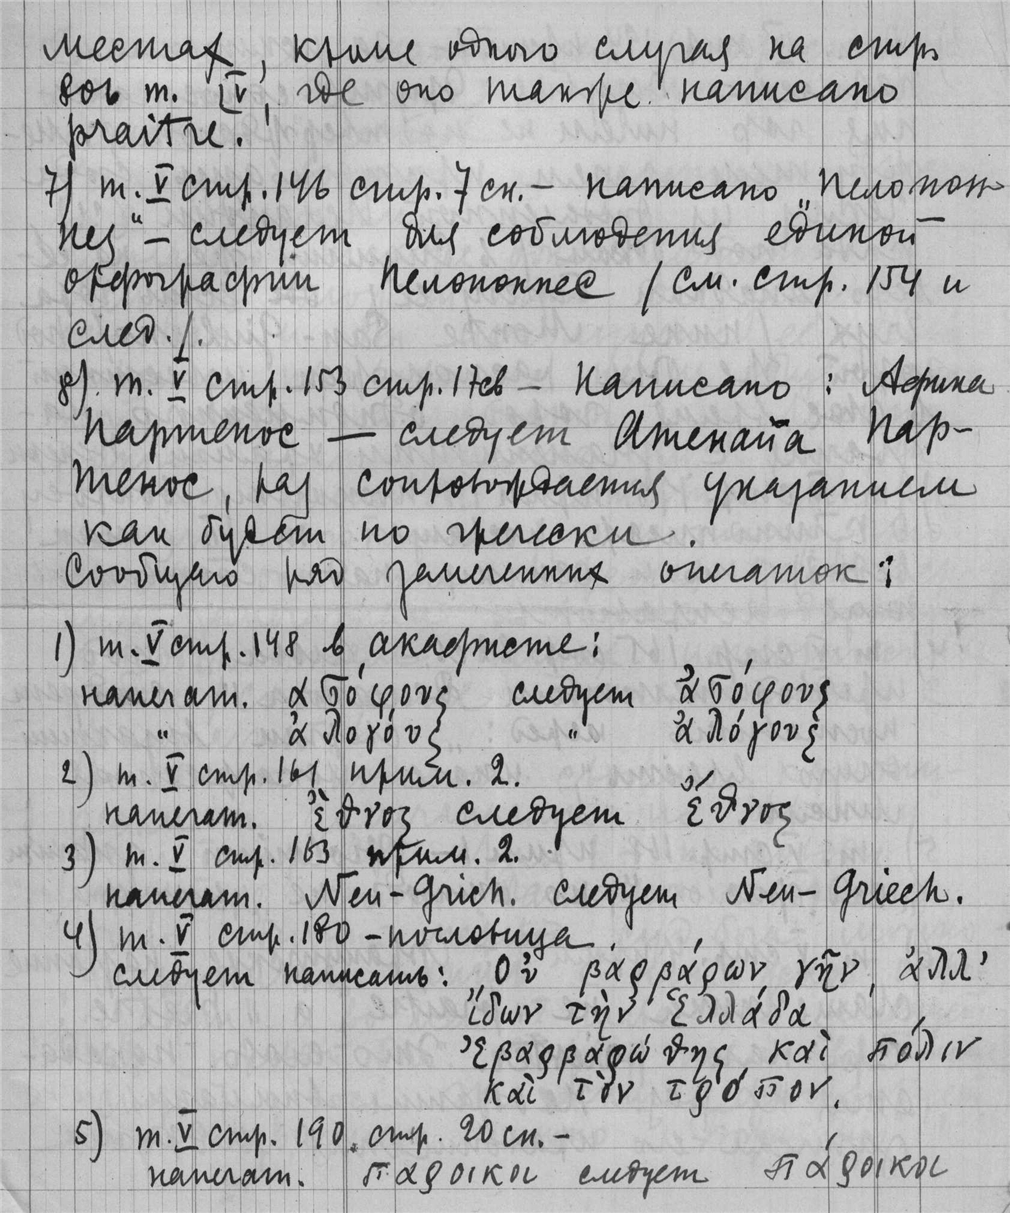 местах, кроме одного случая на стр.
806 т. IV, где оно также написано
praître.
7) т. V стр. 146 стр. 7 сн. – написано „Пелопон-
нез“ – следует для соблюдения единой
орфографии Пелопоннес /см. стр. 154 и
след./.
8) т. V стр. 153 стр. 17св – Написано: Афина
Партенос — следует Атенайа Пар-
тенос, раз сопровождается указанием
как будет по гречески.
Сообщаю ряд замеченных опечаток:
1) т. V стр. 148 в акафисте:
напечат. ἀπόφους следует ἀπόφους
" ἀλογόυς " ἀλόγους
2) т. V стр. 161 прим. 2.
напечат. Ἒθνος следует Ἔθνος
3) т. V стр. 163 прим. 2.
напечат. Neu-Grich. следует Neu-Griech.
4) т. V стр. 180 – пословица.
следует написать: Οὐ βαρβάρων γῆν, ἀλλ'
ἰδων τὴν Ἑλλάδα
Ἐβαρβαρώθης καὶ πόλιν
καὶ τὸν τρόπον.
5) т. V стр. 190. стр. 20 сн. –
напечат. παροικοι следует πάροικοι